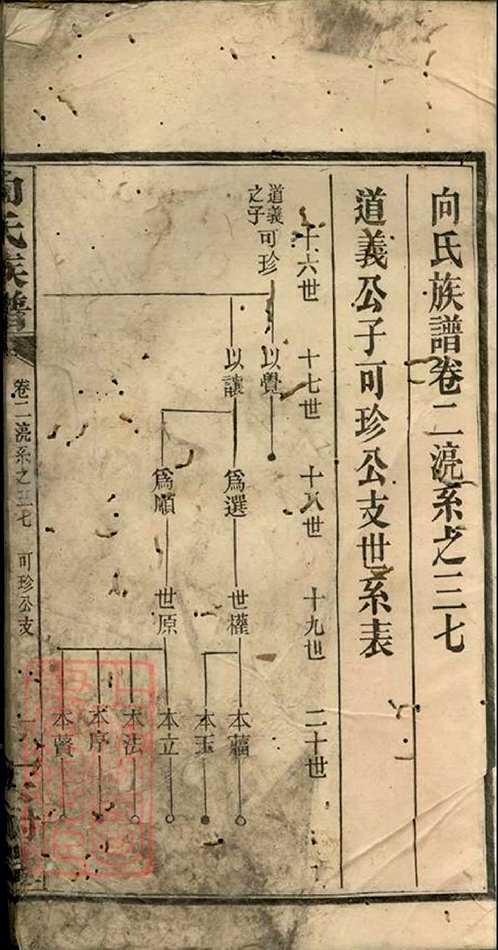 向氏族譜卷二滰系之三七
道義公子可珍公支世系表
十六世
十七世
十八世
十九世
二十世
道義
之子
可珍
以覺
以讓
爲選
爲順
世權
世原
本蘊
本玉
本立
本法
本序
本贊
向氏族譜
卷二滰系之三七 可珍公支